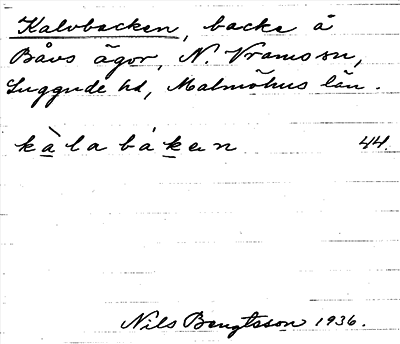 Kalvbacken, backe å
Båvs ägor, N. Vrams sn,
Luggude hd, Malmöhus län.
kàlabàken 44.
Nils Bengtsson 1936.